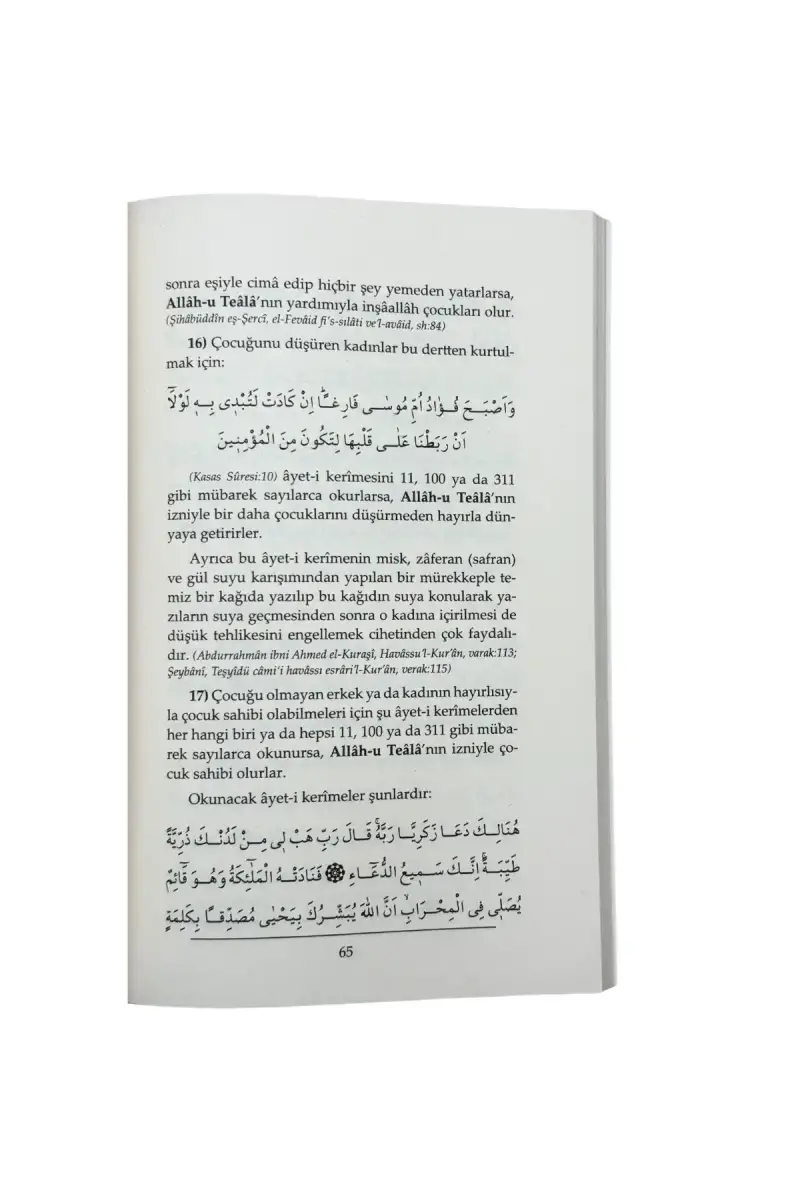 sonra eşiyle cimâ edip hiçbir şey yemeden yatarlarsa,
Allâh-u Teâlâ'nın yardımıyla inşâallâh çocukları olur.
(Şihâbüddîn eş-Şercî, el-Fevâid fi's-sılâti ve'l-avâid, sh:84)
16) Çocuğunu düşüren kadınlar bu dertten kurtul-
mak için:
وَاَصْبَحَ فُؤٰادُ اُمِّ مُوسٰى فَارِغًاۜ اِنْ كَادَتْ لَتُبْد۪ى بِه۪ لَوْلَٓا
اَنْ رَبَطْنَا عَلٰى قَلْبِهَا لِتَكُونَ مِنَ الْمُؤْمِن۪ينَ
(Kasas Sûresi:10) âyet-i kerîmesini 11, 100 ya da 311
gibi mübarek sayılarca okurlarsa, Allâh-u Teâlâ'nın
izniyle bir daha çocuklarını düşürmeden hayırla dün-
yaya getirirler.
Ayrıca bu âyet-i kerîmenin misk, zâferan (safran)
ve gül suyu karışımından yapılan bir mürekkeple te-
miz bir kağıda yazılıp bu kağıdın suya konularak ya-
zıların suya geçmesinden sonra o kadına içirilmesi de
düşük tehlikesini engellemek cihetinden çok faydalı-
dır. (Abdurrahmân ibni Ahmed el-Kuraşî, Havâssu'l-Kur'ân, varak:113;
Şeybânî, Teşyîdü câmi'i havâssı esrâri'l-Kur'ân, verak:115)
17) Çocuğu olmayan erkek ya da kadının hayırlısıy-
la çocuk sahibi olabilmeleri için şu âyet-i kerîmelerden
her hangi biri ya da hepsi 11, 100 ya da 311 gibi müba-
rek sayılarca okunursa, Allâh-u Teâlâ'nın izniyle ço-
cuk sahibi olurlar.
Okunacak âyet-i kerîmeler şunlardır:
هُنَالِكَ دَعَا زَكَرِيَّا رَبَّهُۚ قَالَ رَبِّ هَبْ ل۪ى مِنْ لَدُنْكَ ذُرِّيَّةً
طَيِّبَةًۚ اِنَّكَ سَم۪يعُ الدُّعَٓاءِ ۞ فَنَادَتْهُ الْمَلٰٓئِكَةُ وَهُوَ قَٓائِمٌ
يُصَلّ۪ى فِى الْمِحْرَابِۙ اَنَّ اللّٰهَ يُبَشِّرُكَ بِيَحْيٰى مُصَدِّقًا بِكَلِمَةٍ
65